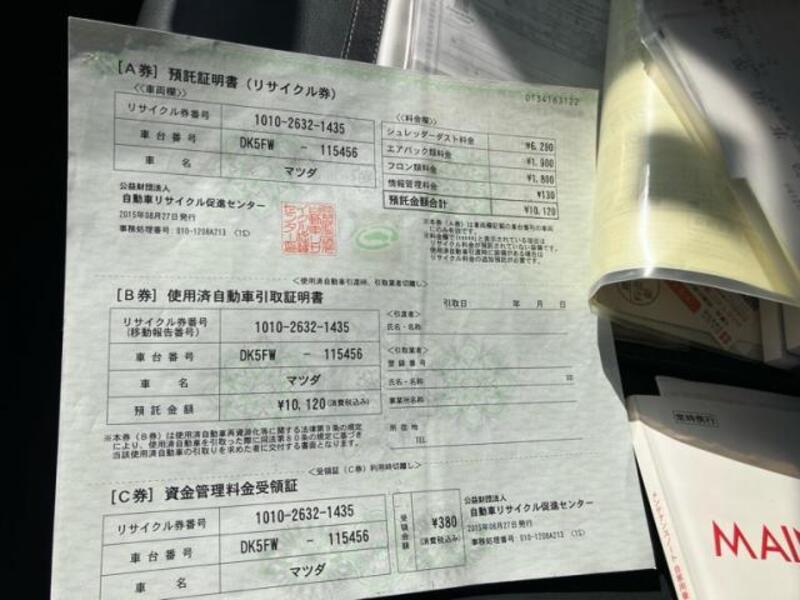 [A券] 預託証明書 (リサイクル券)
0134163122
<<車両欄>>
リサイクル券番号 1010-2632-1435
車台番号 DK5FW - 115456
車名 マツダ
<<料金欄>>
シュレッダーダスト料金 ¥6,290
エアバック類料金 ¥1,900
フロン類料金 ¥1,800
情報管理料金 ¥130
預託金額合計 ¥10,120
公益財団法人
自動車リサイクル促進センター
2015年08月27日発行
事務処理番号:010-1208A213 (1S)
<使用済自動車引渡時、引取業者切離し>
[B券] 使用済自動車引取証明書
リサイクル券番号
(移動報告番号) 1010-2632-1435
車台番号 DK5FW - 115456
車名 マツダ
預託金額 ¥10,120(消費税込み)
引取日 年 月 日
<引渡者>
氏名・名称
<引取業者>
登録番号
氏名・名称
事業所名称
所在地
TEL
※本券(B券)は使用済自動車再資源化等に関する法律第9条の規定
により、使用済自動車を引取った際に同法第80条の規定に基づき
当該使用済自動車の引取りを求めた者に交付する書面となります。
<受領証(C券)利用時切離し>
[C券] 資金管理料金受領証
リサイクル券番号 1010-2632-1435
車台番号 DK5FW - 115456
車名 マツダ
受領金額 ¥380
(消費税込み)
公益財団法人
自動車リサイクル促進センター
2015年08月27日発行
事務処理番号:010-1208A213 (1S)
常時携行
メンテナンスノート
MAI